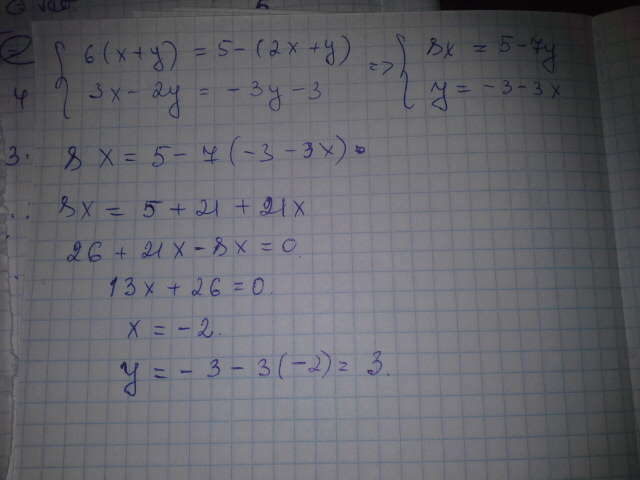 2
{ 6(x+y) = 5-(2x+y) => { 8x = 5-7y
4 { 3x-2y = -3y-3 { y = -3-3x
3. 8x = 5-7(-3-3x).
8x = 5+21+21x
26+21x-8x=0.
13x+26=0.
x=-2.
y=-3-3(-2)=3.